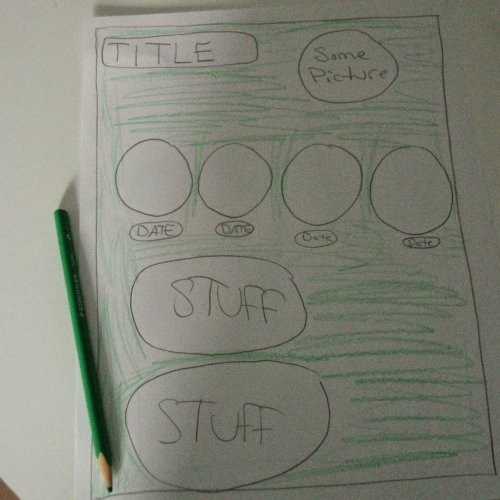 TITLE
Some
Picture
DATE
DATE
Date
Date
STUFF
STUFF